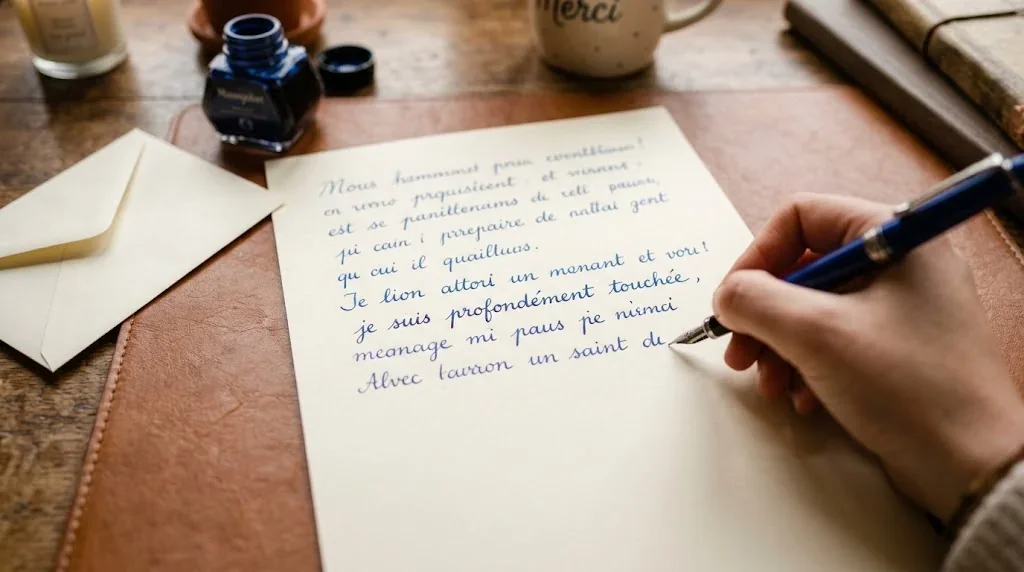 Merci
Mous hammmet pour
en vomo prquisitent et
est se panittenams de reti pauses,
pi cain i prrepaire de nattai gent
qu cui il quailluus.
Je lion attori un menant et vou!
je suis profondément touchée,
meanage mi paus pie niemci
Alvec un saint de